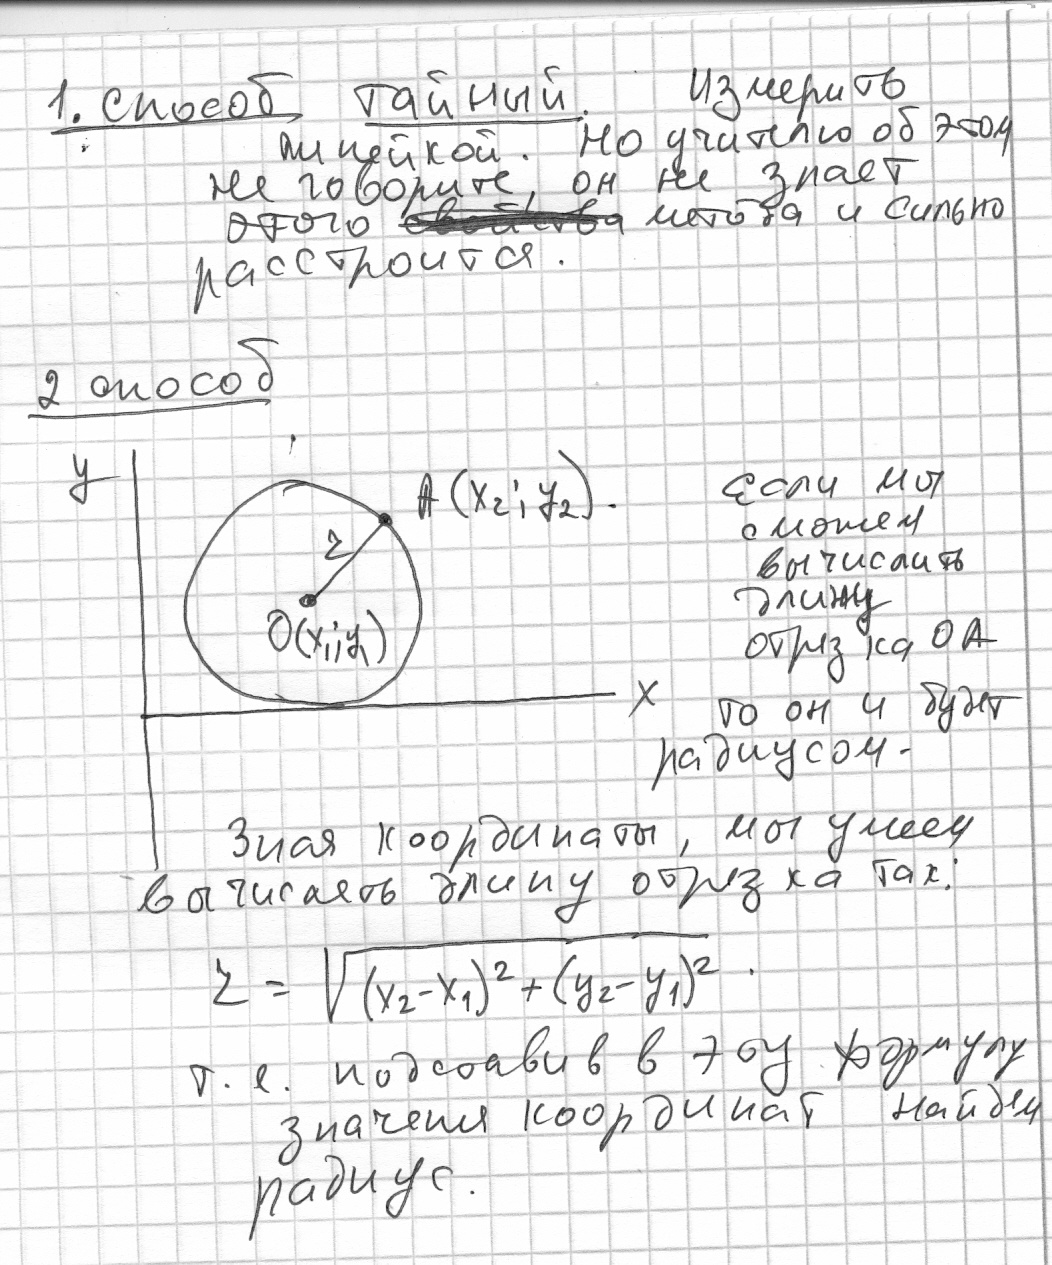 1. способ тайный. Измерить
линейкой. Но учителю об этом
не говорите, он не знает
этого метода и сильно
расстроится.
2 способ
y
A(x₂; y₂).
r
O(x₁; y₁)
x
Если мы
сможем
вычислить
длину
отрезка OA
то он и будет
радиусом.
Зная координаты, мы умеем
вычислять длину отрезка так:
r = √(x₂-x₁)² + (y₂-y₁)² .
т. е. подставив в эту формулу
значения координат найдем
радиус.